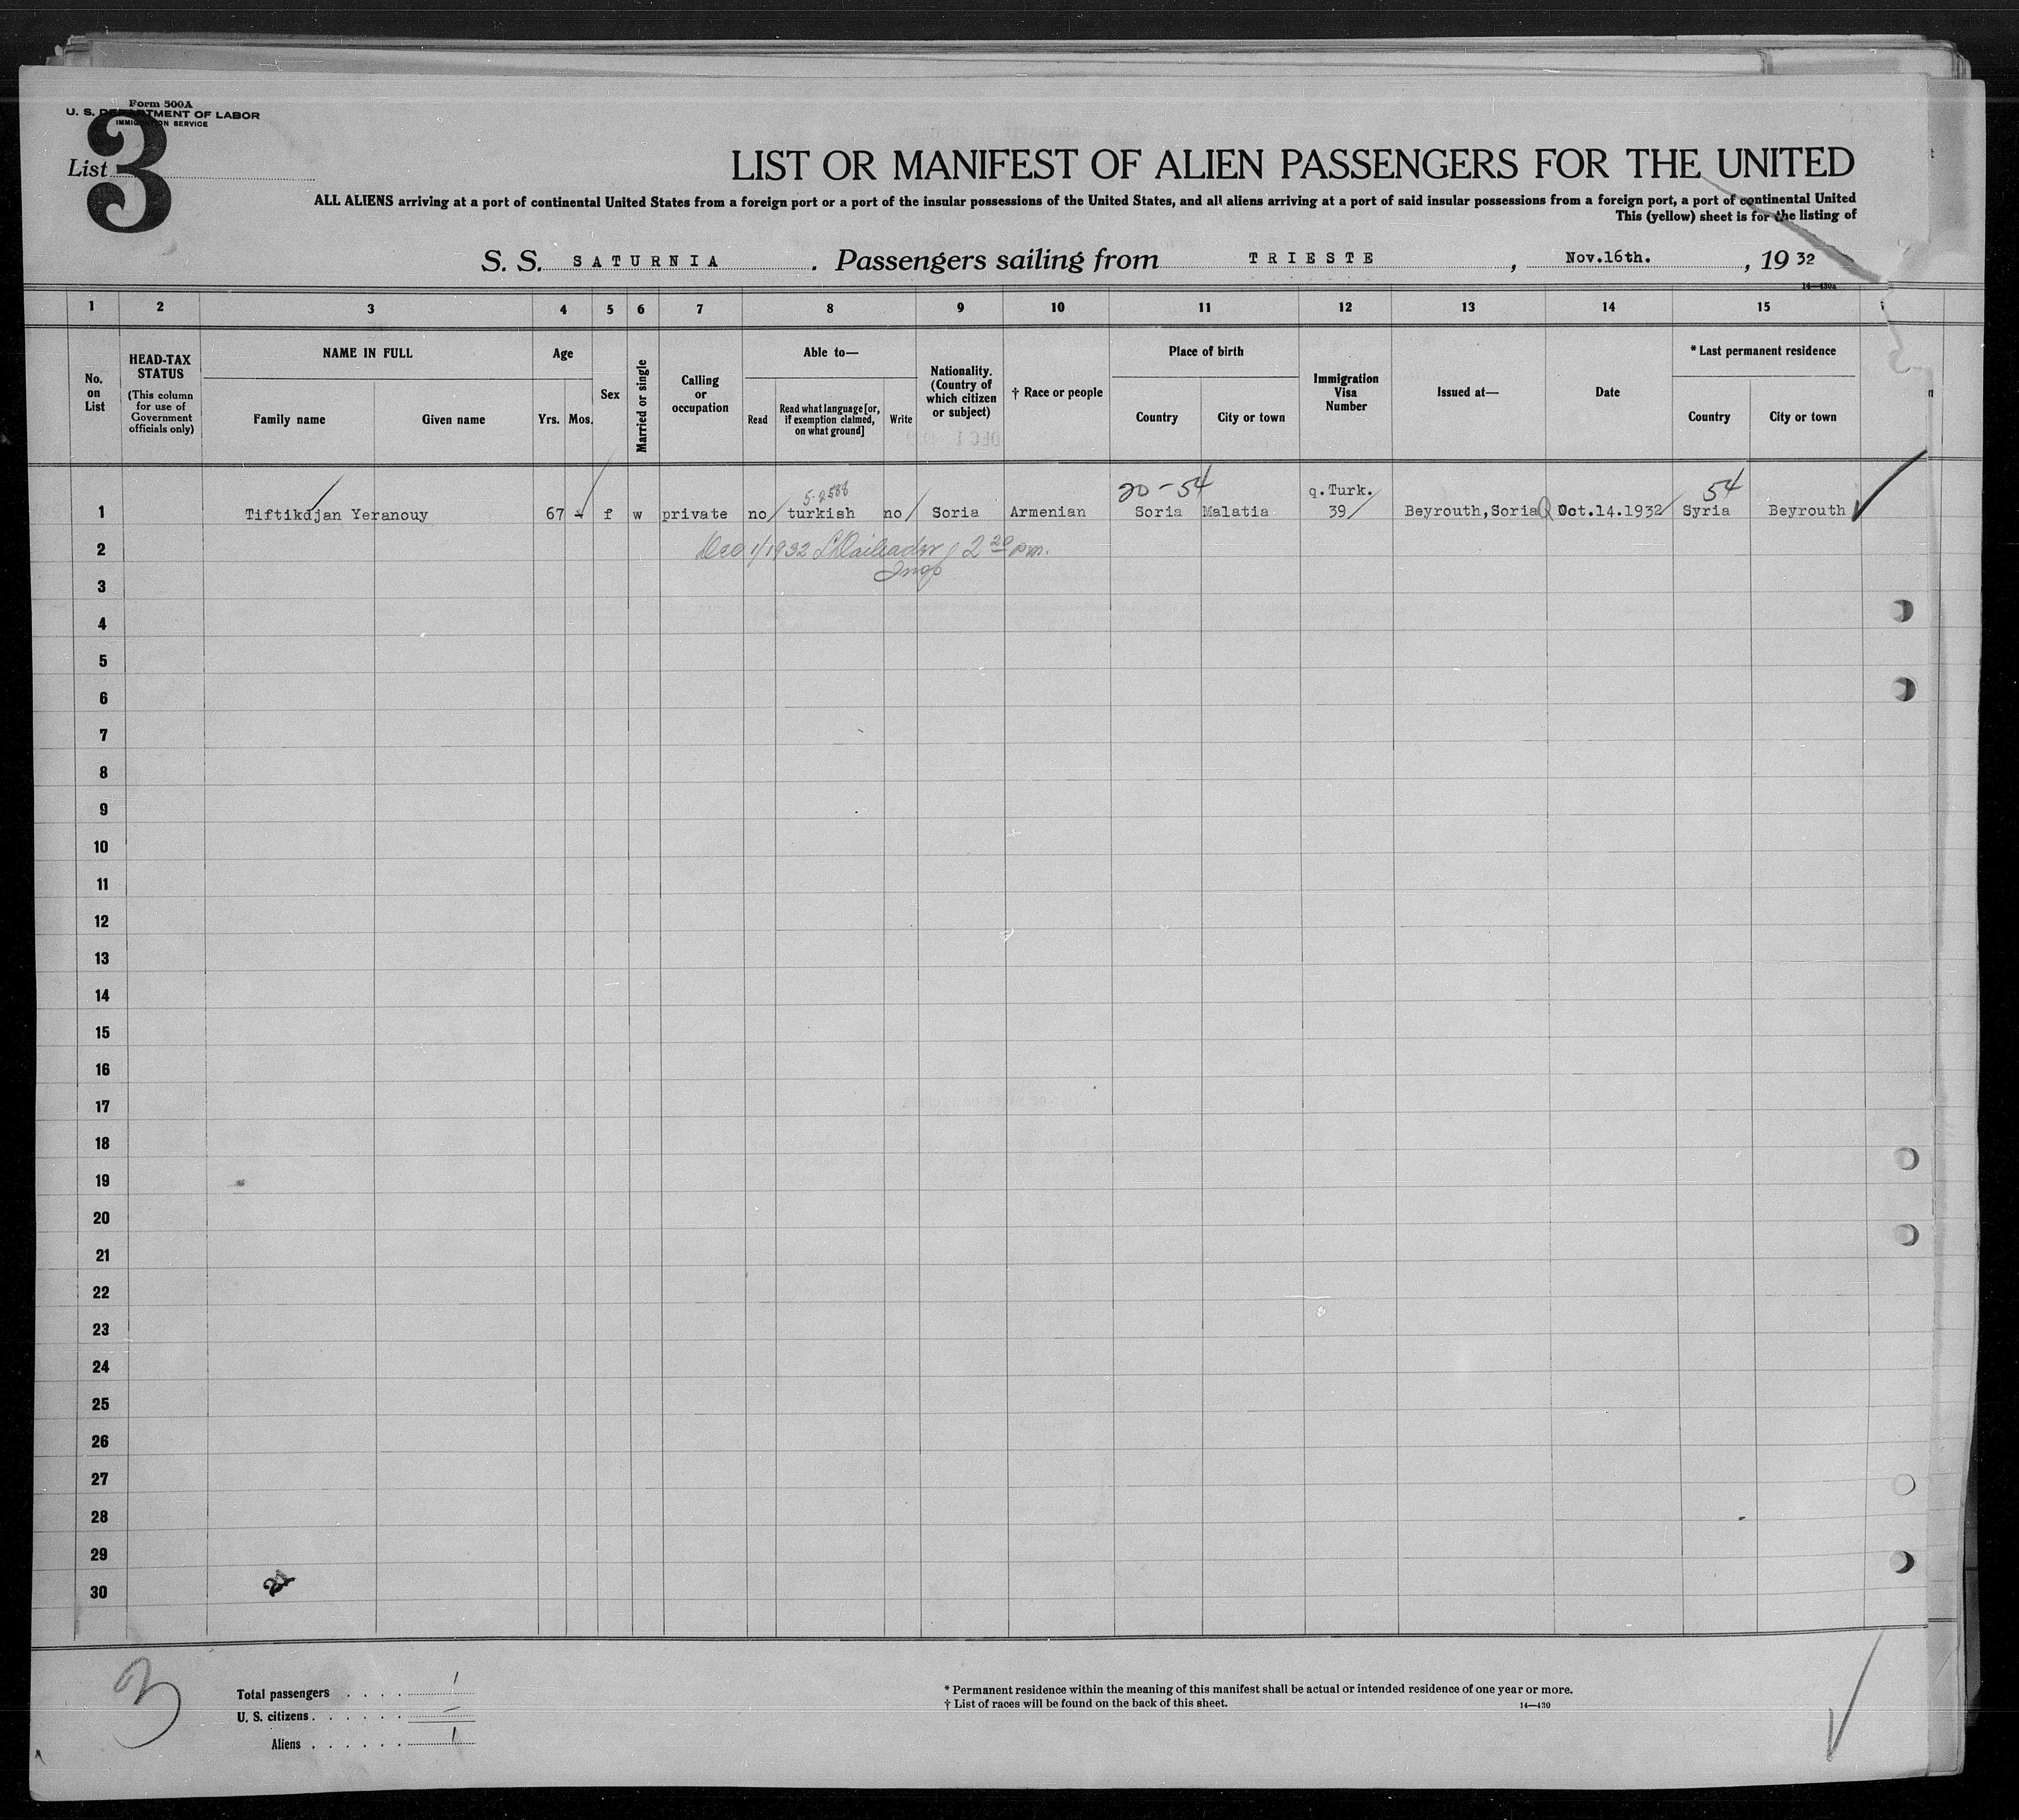 Form 500A
U. S. DEPARTMENT OF LABOR
IMMIGRATION SERVICE
List 3
LIST OR MANIFEST OF ALIEN PASSENGERS FOR THE UNITED
ALL ALIENS arriving at a port of continental United States from a foreign port or a port of the insular possessions of the United States, and all aliens arriving at a port of said insular possessions from a foreign port, a port of continental United
This (yellow) sheet is for the listing of
S. S. SATURNIA . Passengers sailing from TRIESTE , Nov.16th. , 19 32
14—430A
1 2 3 4 5 6 7 8 9 10 11 12 13 14 15
No. on List
HEAD-TAX STATUS
(This column for use of Government officials only)
NAME IN FULL
Family name Given name
Age
Yrs. Mos.
Sex
Married or single
Calling or occupation
Able to—
Read
Read what language [or, if exemption claimed, on what ground]
Write
Nationality. (Country of which citizen or subject)
† Race or people
Place of birth
Country City or town
Immigration Visa Number
Issued at—
Date
* Last permanent residence
Country City or town
5-2588 20-54 q.Turk. 54
1 Tiftikdjan Yeranouy 67 f w private no turkish no Soria Armenian Soria Malatia 39 Beyrouth,Soria Oct.14.1932 Syria Beyrouth
2 Dec 1/1932 2 20 pm.
Insp
3
4
5
6
7
8
9
10
11
12
13
14
15
16
17
18
19
20
21
22
23
24
25
26
27
28
29
30
3
Total passengers . . . . 1
U. S. citizens . . . . . . —
Aliens . . . . . . 1
* Permanent residence within the meaning of this manifest shall be actual or intended residence of one year or more.
† List of races will be found on the back of this sheet.
14—430